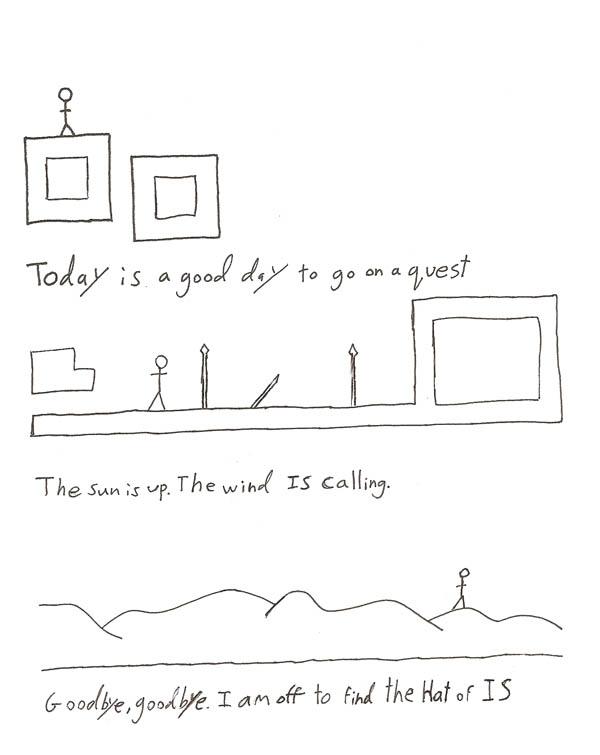 Today is a good day to go on a quest
The sun is up. The wind IS calling.
Goodbye, goodbye. I am off to find the Hat of IS